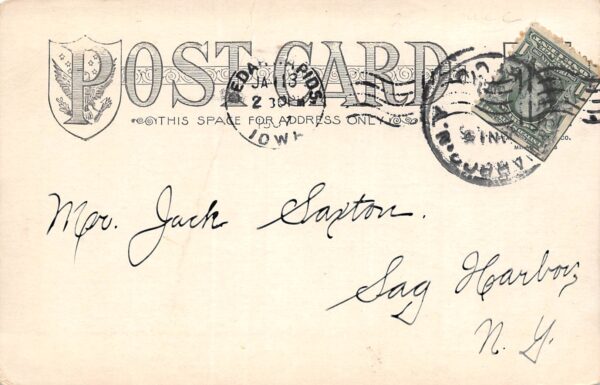 POST CARD
THIS SPACE FOR ADDRESS ONLY
CEDAR RAPIDS.
JA 13
2 30
IOWA
Mr. Jack Saxton.
Sag Harbor,
N. Y.